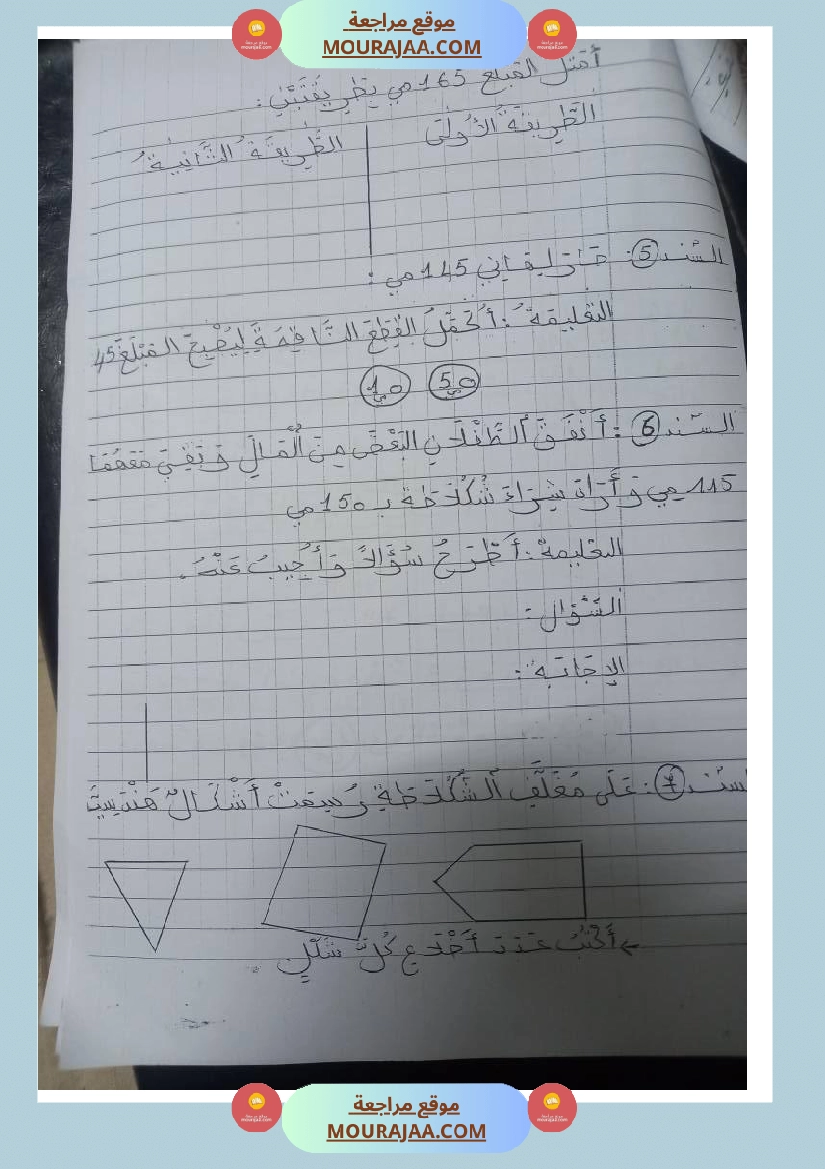 موقع مراجعة
MOURAJAA.COM
أمثل المبلغ 165 مي بطريقتين :
الطريقة الأولى
الطريقة الثانية
السند 5 : 145 مي :
التعليمة : أكمل القطع الناقصة ليصبح المبلغ 45
50 مي 10 مي
السند 6 : أنفق الطفلان البعض من المال و بقي معهما
115 مي و أراد شراء شكلاطة بـ 150 مي
التعليمة : أطرح سؤالا و أجيب عنه .
السؤال :
الإجابة :
سند 7 : على مغلف الشكلاطة رسمت أشكال هندسية
← أكتب عدد أضلاع كل شكل .
موقع مراجعة
MOURAJAA.COM